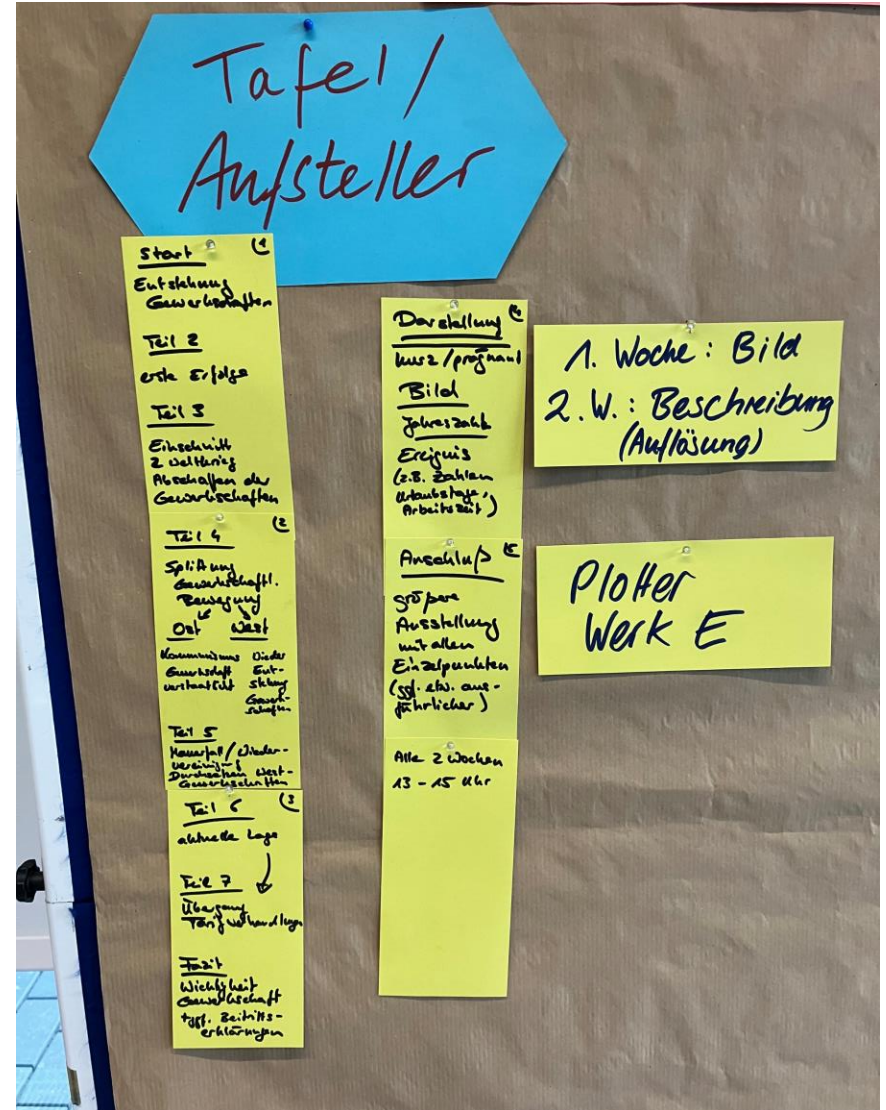 Tafel /
Aufsteller
Start (1
Entstehung
Gewerkschaften
Teil 2
erste Erfolge
Teil 3
Einschnitt
2 Weltkrieg
Abschaffen der
Gewerkschaften
Teil 4 (2
Splittung
Gewerkschaftl.
Bewegung
Ost West
Kommunismus Wieder
Gewerkschaft Ent-
verstaatlicht stehung
Gewerk-
schaften
Teil 5
Mauerfall / Wieder-
vereinigung
Durchsetzen West-
Gewerkschaften
Teil 6 (3
aktuelle Lage
Teil 7
Übergang
Tarifverhandlungen
Fazit
Wichtigkeit
Gewerkschaft
+ ggf. Beitritts-
erklärungen
Darstellung (4
kurz / prägnant
Bild
Jahreszahl
Ereignis
(z.B. Zahlen
Urlaubstage,
Arbeitszeit)
Anschluß (5
größere
Ausstellung
mit allen
Einzelpunkten
(ggf. etw. aus-
führlicher)
Alle 2 Wochen
13 - 15 Uhr
1. Woche: Bild
2. W.: Beschreibung
(Auflösung)
Plotter
Werk E